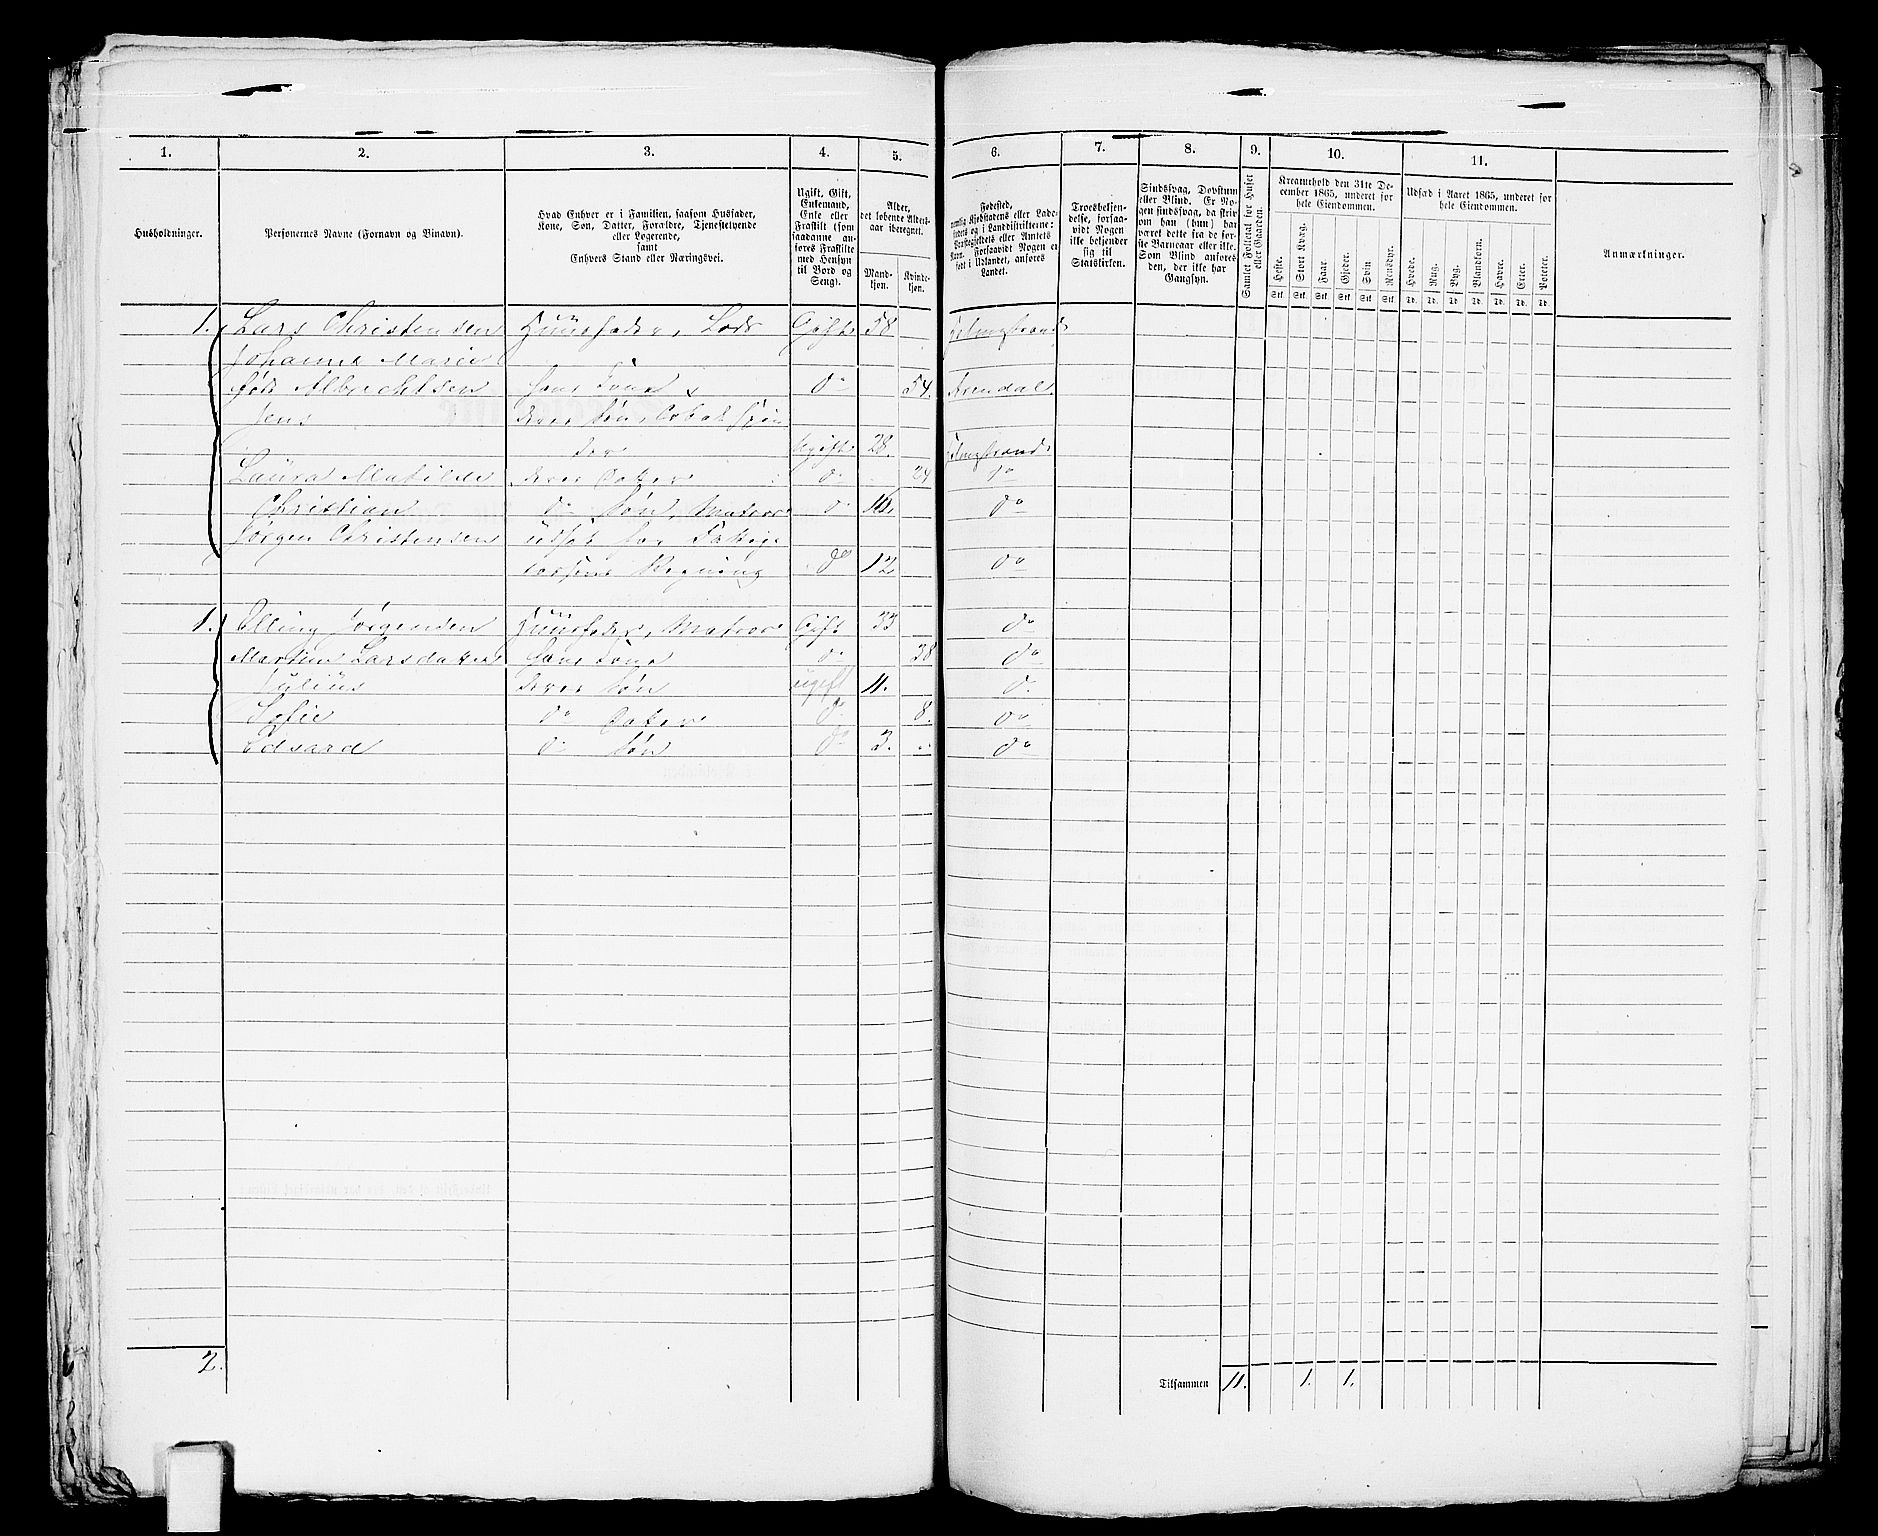 1. 2. 3. 4. 5. 6. 7. 8. 9. 10. 11.
Husholdninger.
Personernes Navne (Fornavn og Binavn).
Hvad Enhver er i Familien, saasom Husfader,
Kone, Søn, Datter, Forældre, Tjenestetyende
eller Logerende,
samt
Enhvers Stand eller Næringsvei.
Ugift, Gift,
Enkemand,
Enke eller
Fraskilt (som
saadanne an-
føres Fraskilte
med Hensyn
til Bord og
Seng).
Alder,
det løbende Alders-
aar iberegnet.
Mand-
kjøn.
Kvinde-
kjøn.
Fødested,
nemlig Kjøbstadens eller Lade-
stedets og i Landdistrikterne:
Præstegjeldets eller Amtets
Navn. Forsaavidt Nogen er
født i Udlandet, anføres
Landet.
Troesbekjen-
delse, forsaa-
vidt Nogen
ikke bekjender
sig til
Statskirken.
Sindssvag, Døvstum
eller Blind. Er No-
gen sindssvag, da skriv
om han (hun) har
været dette fra de før-
ste Barneaar eller ikke.
Som Blind anføres
den, der ikke har
Gangsyn.
Samlet Folketal for Huset
eller Gaarden.
Kreaturhold den 31te De-
cember 1865, underet for
hele Eiendommen.
Heste. Stort Kvæg. Faar. Gjeder. Svin. Rensdyr.
Stk. Stk. Stk. Stk. Stk. Stk.
Udsæd i Aaret 1865, underet for
hele Eiendommen.
Hvede. Rug. Byg. Blandkorn. Havre. Erter. Poteter.
Td. Td. Td. Td. Td. Td. Td.
Anmærkninger.
1. Lars Christensen Huusfader, Lods Gift 58
Johanne Marie
fød Albrechtsen hans Kone do 54. Arendal
Jens deres Søn,
Ugift 28.
Laura Matilde deres Datter do 24 do
Christian do Søn, Matros do do
Jørgen Christensen
do 12 do
1. Elling Jørgensen Huusfader, Matros Gift 33 do
Larsdatter hans Kone do 38 do
Julius deres Søn ugift 11. do
Sofie do Datter do 8. do
Edvard do Søn do 3. do
2.
Tilsammen 11. 1. 1.